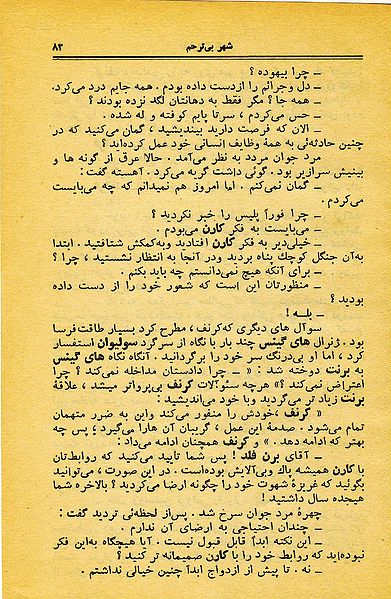 شهر بی‌ترحم ۸۳
ــ چرا بیهوده ؟
ــ دل وجرائم را ازدست داده بودم . همه جایم درد می‌کرد.
ــ همه جا ؟ مگر فقط به دهانتان لگد نزده بودند ؟
ــ حس می‌کردم ، سرتا پایم کوفته و له شده .
ــ الان که فرصت دارید بیندیشید ، گمان می‌کنید که در
چنین حادثه‌ئی به همهٔ وظایف انسانی خود عمل کرده‌اید ؟
مرد جوان مردد به نظر می‌آمد . حالا عرق از گونه ها و
بینیش سرازیر بود . گوئی داشت گریه می‌کرد . آهسته گفت :
ــ گمان نمی‌کنم . اما امروز هم نمیدانم که چه می‌بایست
می‌کردم .
ــ چرا فوراً پلیس را خبر نکردید ؟
ــ می‌بایست به فکر کارن می‌بودم .
ــ خیلی‌دیر به فکر کارن افتادید وبه‌کمکش شتافتید . ابتدا
به‌آن جنگل کوچك پناه بردید ودر آنجا به انتظار نشستید ، چرا ؟
ــ برای آنکه هیچ نمی‌دانستم چه باید بکنم .
ــ منظورتان این است که شعور خود را از دست داده
بودید ؟
ــ بلـه !
سوآل های دیگری که‌کرنف ، مطرح کرد بسیار طاقت‌فرسا
بود . ژنرال های گینس چند بار با نگاه از سرگرد سولیوان استفسار
کرد ، اما او بی‌درنگ سر خود را برگردانید . آنگاه نگاه های گینس
به برنت دوخته شد : « ــ چرا دادستان مداخله نمی‌کند ؟ چرا
اعتراض نمی‌کند ؟» هرچه سئوآلات کرنف بی‌پرواتر میشد ، علاقهٔ
برنت زیاد تر می‌گردید وبا خود می‌اندیشید :
« کرنف ،خودش را منفور می‌کند واین به ضرر متهمان
تمام می‌شود . صدمهٔ این عمل ، گریبان آن هارا می‌گیرد ؛ پس چه
بهتر که ادامه دهد . » و کرنف همچنان ادامه می‌داد :
ــ آقای برن فلد ! پس شما تایید می‌کنید که روابطتان
با کارن همیشه پاك وبی‌آلایش بوده‌است . در این صورت ، می‌توانید
بگوئید که غریزهٔ شهوت خود را چگونه ارضا می‌کردید ؟ بالاخره شما
هیجده سال داشتید !
چهرهٔ مرد جوان سرخ شد . پس‌از لحظه‌ئی تردید گفت :
ــ چندان احتیاجی به ارضای آن ندارم .
ــ این نکته ابداً قابل قبول نیست . آیا هیچگاه به‌این فکر
نبوده‌اید که روابط خود را با کارن صمیمانه تر کنید ؟
ــ نه . تا پیش از ازدواج ابداً چنین خیالی نداشتم .